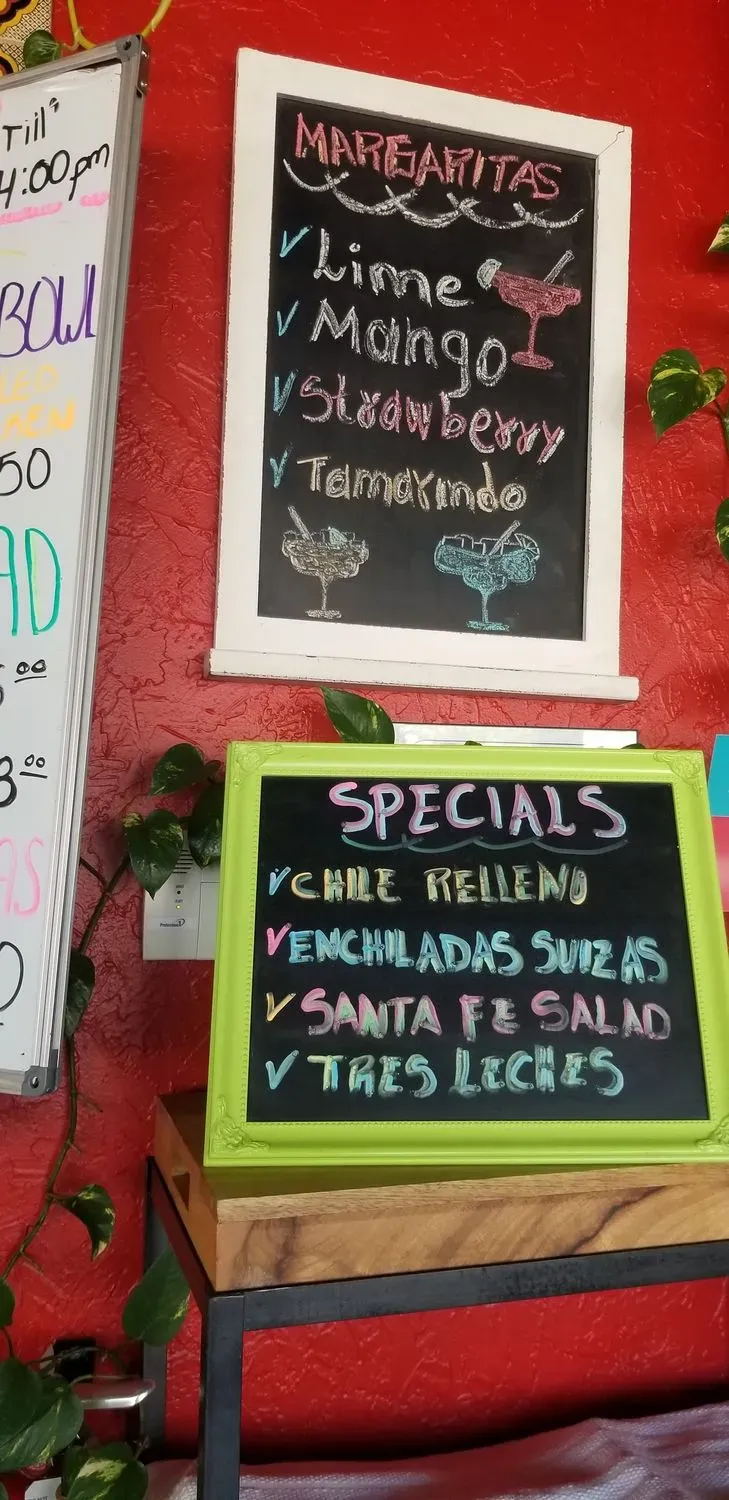 Till
4:00pm
BOWL
50
MARGARITAS
Lime
Mango
Strawberry
Tamarindo
SPECIALS
CHILE RELLENO
ENCHILADAS SUIZAS
SANTA FE SALAD
TRES LECHES